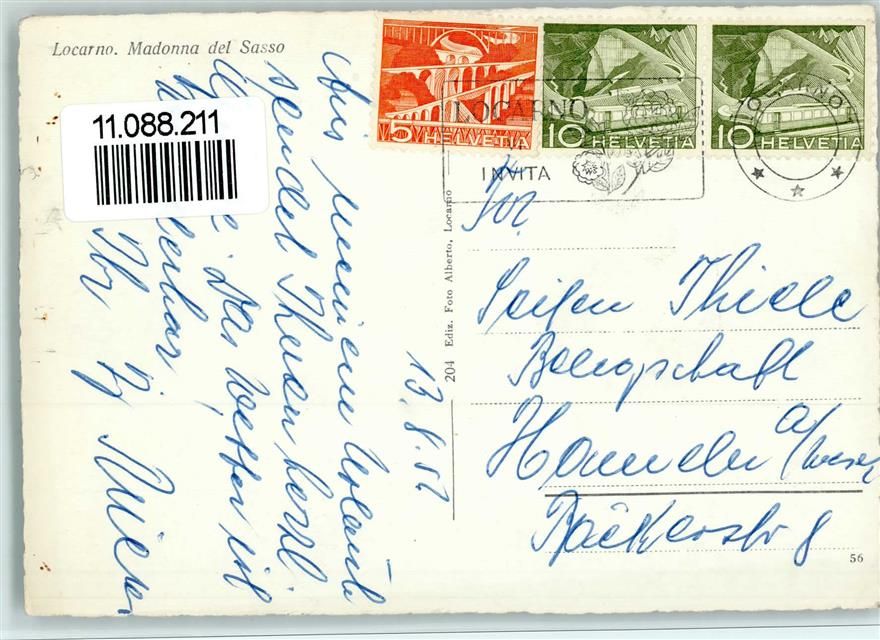 Locarno. Madonna del Sasso
11.088.211
Aus meinem Urlaub
sendet Ihnen herzl.
Das Wetter ist
Ihr
13.8.52
204 Ediz. Foto Alberto, Locarno
5 HELVETIA
10 HELVETIA
10 HELVETIA
LOCARNO
INVITA
LOCARNO
Seifen Thiele
Belegschaft
Hameln a/Weser
Bäckerstr 8
56